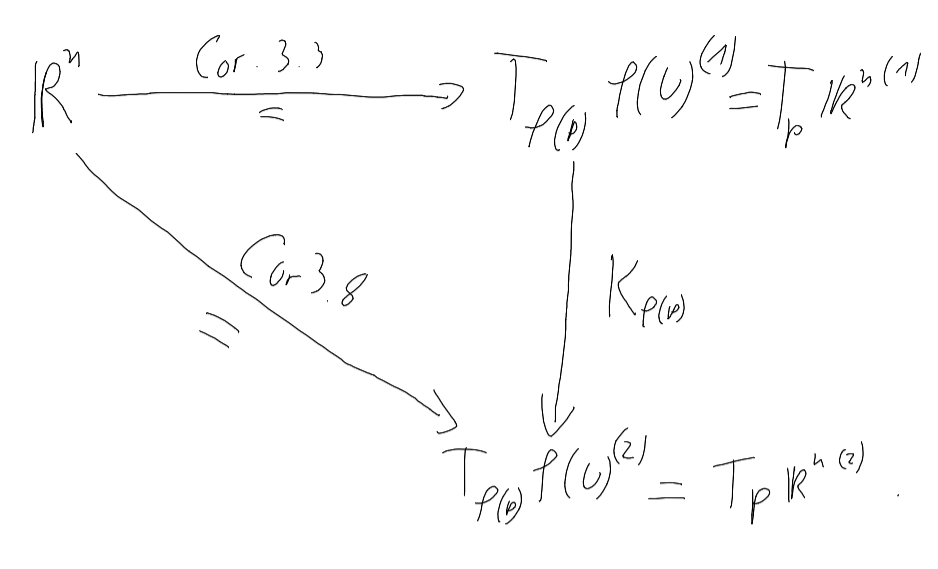 ℝⁿ Cor. 3.3 = T_φ(p) φ(U)⁽¹⁾ = T_p ℝⁿ ⁽¹⁾
Cor 3.8 = K_φ(p)
T_φ(p) φ(U)⁽²⁾ = T_p ℝⁿ ⁽²⁾ .